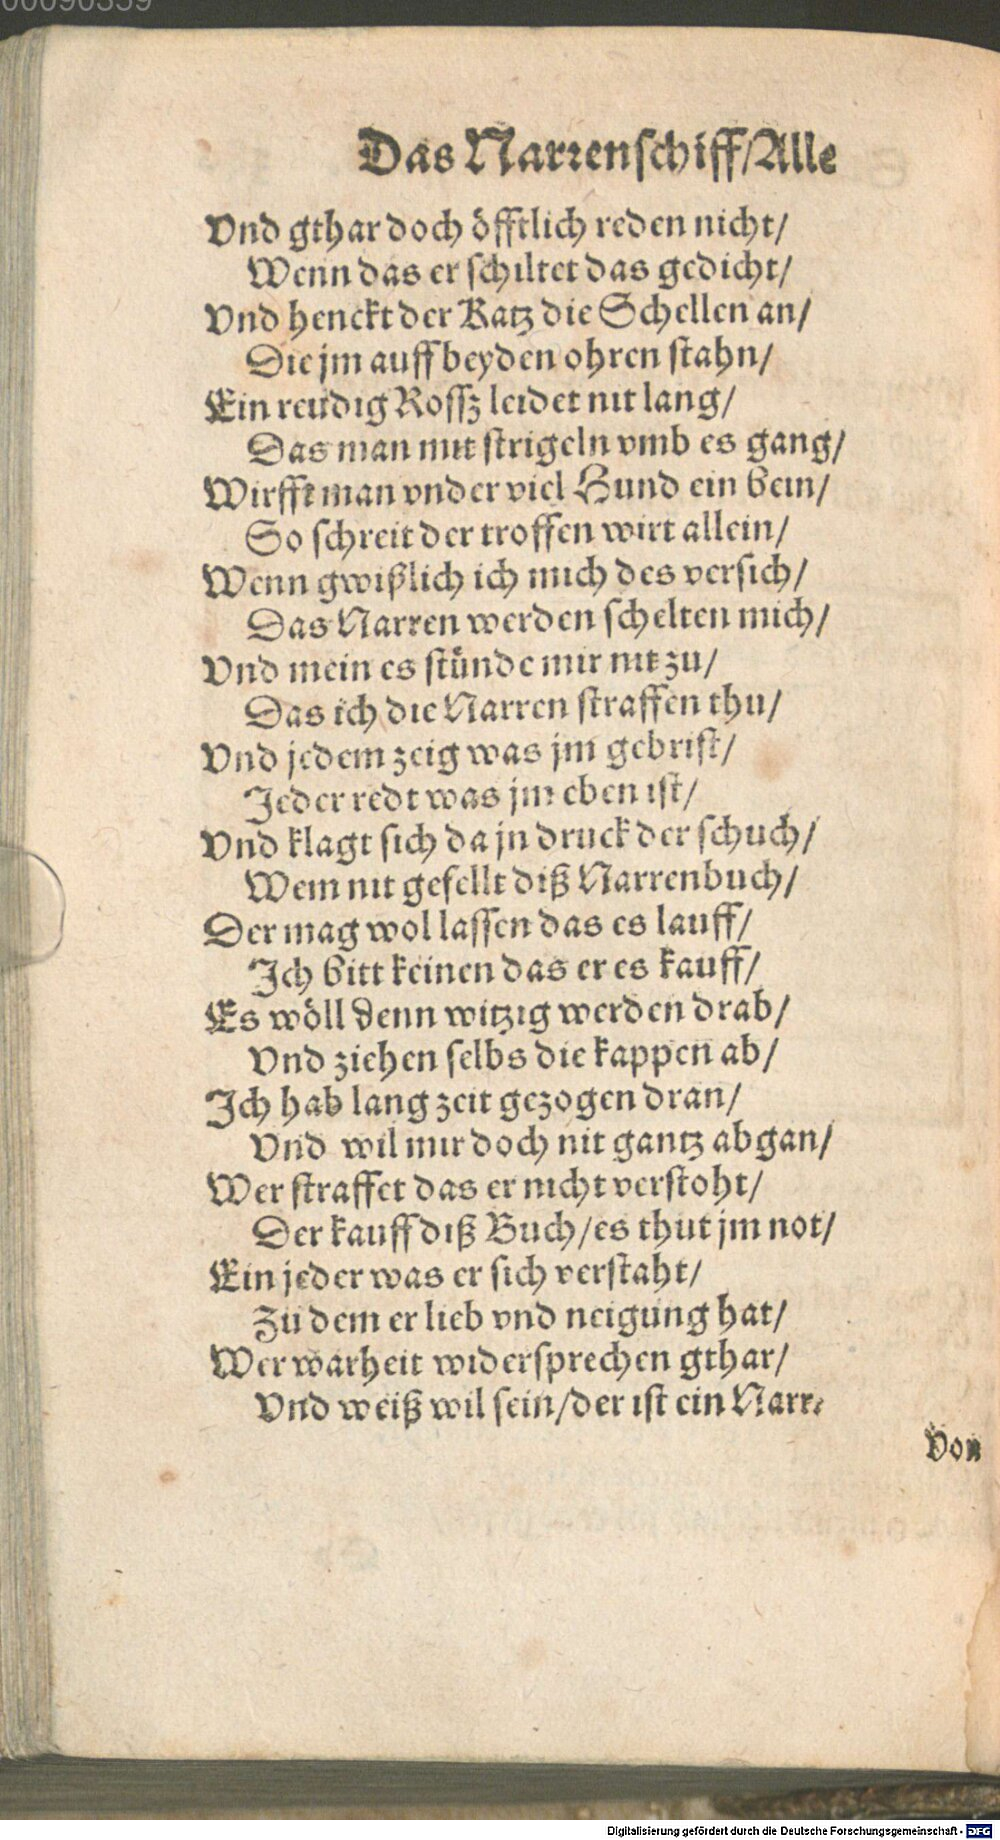 00090359
Das Narrenschiff/Alle
Vnd gthar doch öfftlich reden nicht/
Wenn das er schiltet das gedicht/
Vnd henckt der Katz die Schellen an/
Die jm auff beyden ohren stahn/
Ein reudig Rossz leidet nit lang/
Das man mit strigeln vmb es gang/
Wirfft man vnder viel Hund ein bein/
So schreit der troffen wirt allein/
Wenn gwißlich ich mich des versich/
Das Narren werden schelten mich/
Vnd mein es stünde mir nit zu/
Das ich die Narren straffen thu/
Vnd jedem zeig was jm gebrist/
Jeder redt was jm eben ist/
Vnd klagt sich da jn druck der schuch/
Wem nit gefellt diß Narrenbuch/
Der mag wol lassen das es lauff/
Ich bitt keinen das er es kauff/
Es wöll denn witzig werden drab/
Vnd ziehen selbs die kappen ab/
Ich hab lang zeit gezogen dran/
Vnd wil mir doch nit gantz abgan/
Wer straffet das er nicht verstoht/
Der kauff diß Buch/es thut jm not/
Ein jeder was er sich verstaht/
Zu dem er lieb vnd neigung hat/
Wer warheit widersprechen gthar/
Vnd weiß wil sein/der ist ein Narr.
Von
Digitalisierung gefördert durch die Deutsche Forschungsgemeinschaft - DFG